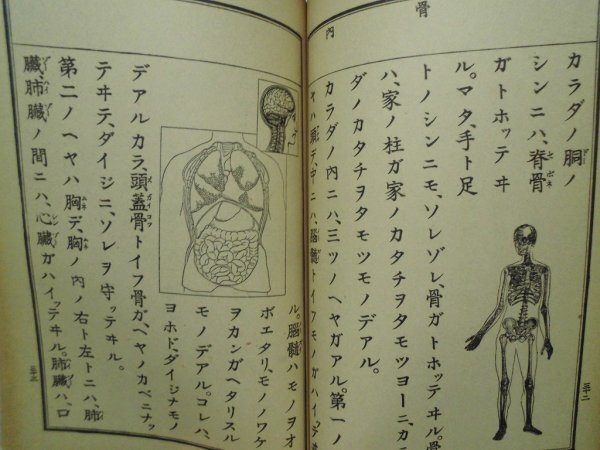 骨
内
カラダノ胴ノ
シンニハ、脊骨
ガトホッテヰ
ル。マタ、手ト足
トノシンニモ、ソレゾレ、骨ガトホッテヰル。骨
ハ、家ノ柱ガ家ノカタチヲタモツヨーニ、カラ
ダノカタチヲタモツモノデアル。
カラダノ内ニハ、三ツノヘヤガアル。第一ノ
ヘヤハ頭デ、中ニハ、脳髄トイフモノガハイッテヰ
ル。脳髄ハモノヲオ
ボエタリ、モノノワケ
ヲカンガヘタリスル
モノデアル。コレハ、
ヨホド、ダイジナモノ
デアルカラ、頭蓋骨トイフ骨ガ、ヘヤノカベニナッ
テヰテ、ダイジニ、ソレヲ守ッテヰル。
第二ノヘヤハ胸デ、胸ノ内ノ右ト左トニハ、肺
臓、肺臓ノ間ニハ、心臓ガハイッテヰル。肺臓ハ、口
三十二
三十三